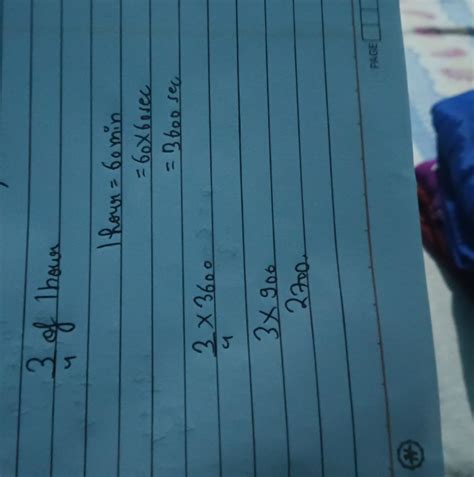 3/4 of 1 hour
1 hour = 60 min
= 60 x 60 sec
= 3600 sec
3/4 x 3600
3 x 900
2700.
PAGE